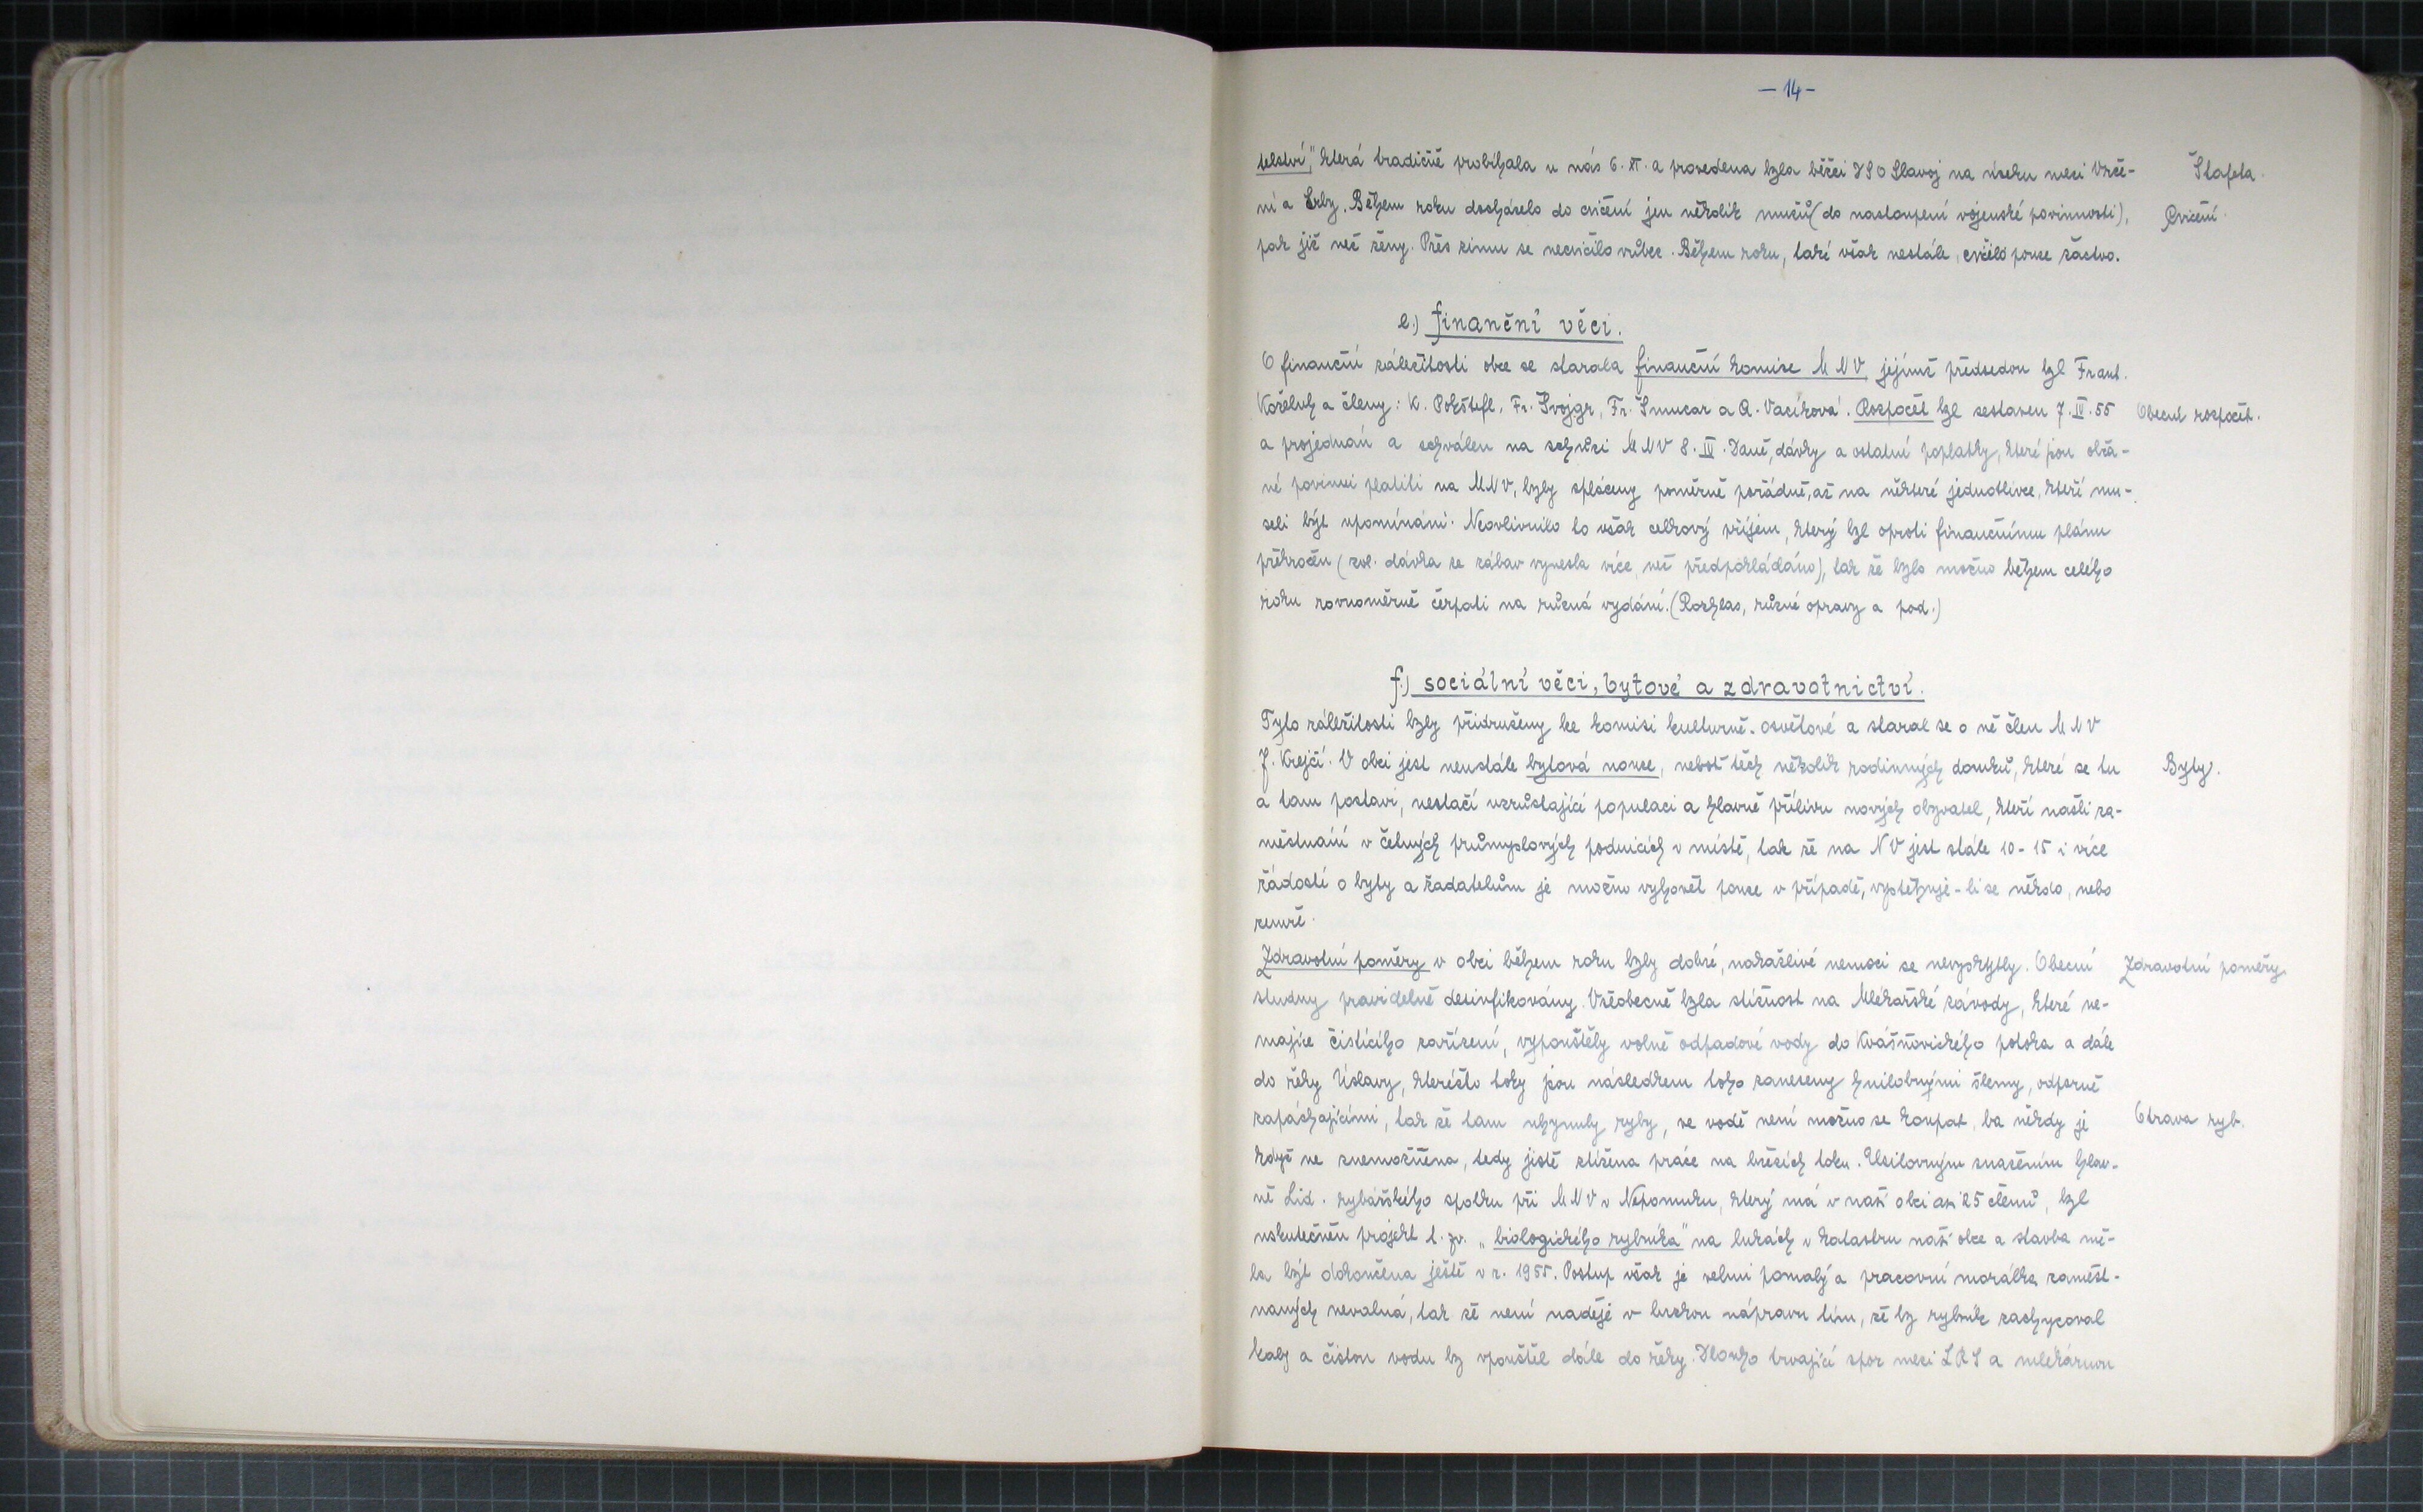 — 14 —
telství", která tradičně probíhala u nás 6. XI. a provedena byla běžci DSO Slavoj na úseku mezi Vrče-
Štafeta.
ní a Srby. Během roku docházelo do cvičení jen několik mužů (do nastoupení vojenské povinnosti),
Cvičení.
pak již než ženy. Přes zimu se necvičilo vůbec. Během roku, také však nestále, cvičilo pouze žactvo.
e.) finanční věci.
O finanční záležitosti obce se starala finanční komise MNV, jejímž předsedou byl Frant.
Koželuh a členy: K. Pokštefl, Fr. Švojgr, Fr. Smucar a A. Vacíková. Rozpočet byl sestaven 7. IV. 55
Obecní rozpočet.
a projednán a schválen na schůzi MNV 8. IV. Daně, dávky a ostatní poplatky, které jsou obča-
né povinni platiti na MNV, byly spláceny poměrně pořádně, až na některé jednotlivce, kteří mu-
seli být upomínáni. Neovlivnilo to však celkový příjem, který byl oproti finančnímu plánu
překročen (zvl. dávka ze zábav vynesla více, než předpokládáno), tak že bylo možno během celého
roku rovnoměrně čerpati na různá vydání. (Rozhlas, různé opravy a pod.)
f.) sociální věci, bytové a zdravotnictví.
Tyto záležitosti byly přidruženy ke komisi kulturně-osvětové a staral se o ně člen MNV
J. Krejčí. V obci jest neustále bytová nouze, neboť těch několik rodinných domků, které se tu
Byty.
a tam postaví, nestačí vzrůstající populaci a hlavně přílivu nových obyvatel, kteří našli za-
městnání v četných průmyslových podnicích v místě, tak že na NV jest stále 10-15 i více
žádostí o byty a žadatelům je možno vyhovět pouze v případě, vystěhuje-li se někdo, nebo
zemře.
Zdravotní poměry v obci během roku byly dobré, nakažlivé nemoci se nevyskytly. Obecní
Zdravotní poměry
studny pravidelně desinfikovány. Všeobecně byla stížnost na Mlékařské závody, které ne-
majíce čistícího zařízení, vypouštěly volně odpadové vody do Kvášňovického potoka a dále
do řeky Úslavy, kteréžto toky jsou následkem toho zaneseny hnilobnými šlemy, odporně
zapáchajícími, tak že tam uhynuly ryby, ve vodě není možno se koupat, ba někdy je
Otrava ryb.
když ne znemožněna, tedy jistě ztížena práce na březích toku. Usilovným snažením hlav-
ně Lid. rybářského spolku při MNV v Nepomuku, který má v naší obci asi 25 členů, byl
uskutečněn projekt t. zv. „biologického rybníka" na lukách v katastru naší obce a stavba mě-
la být dokončena ještě v r. 1955. Postup však je velmi pomalý a pracovní morálka zaměst-
naných nevalná, tak že není naděje v brzkou nápravu tím, že by rybník zachycoval
kaly a čistou vodu by vpouštěl dále do řeky. Dlouho trvající spor mezi LRS a mlékárnou